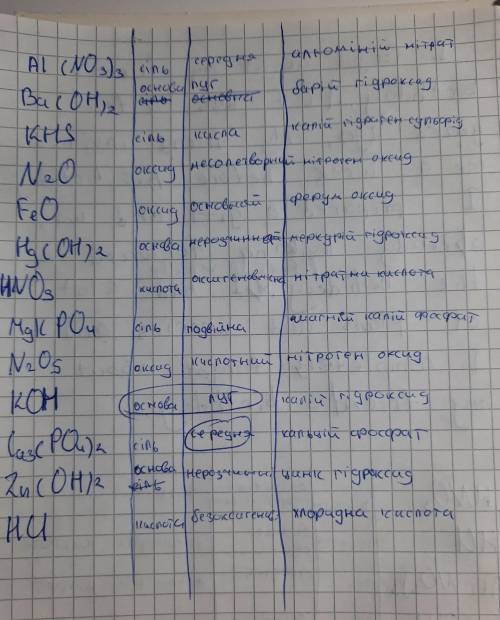 Al(NO3)3 сіль середня алюміній нітрат
Ba(OH)2 основа луг барій гідроксид
KHS сіль кисла калій гідроген сульфід
N2O оксид несолетворний нітроген оксид
FeO оксид основний ферум оксид
Hg(OH)2 основа нерозчинний меркурій гідроксид
HNO3 кислота оксигеновмісна нітратна кислота
MgKPO4 сіль подвійна магній калій фосфат
N2O5 оксид кислотний нітроген оксид
KOH основа луг калій гідроксид
Ca3(PO4)2 сіль середня кальцій фосфат
Zn(OH)2 основа нерозчинна цинк гідроксид
HCl кислота безоксигенна хлоридна кислота